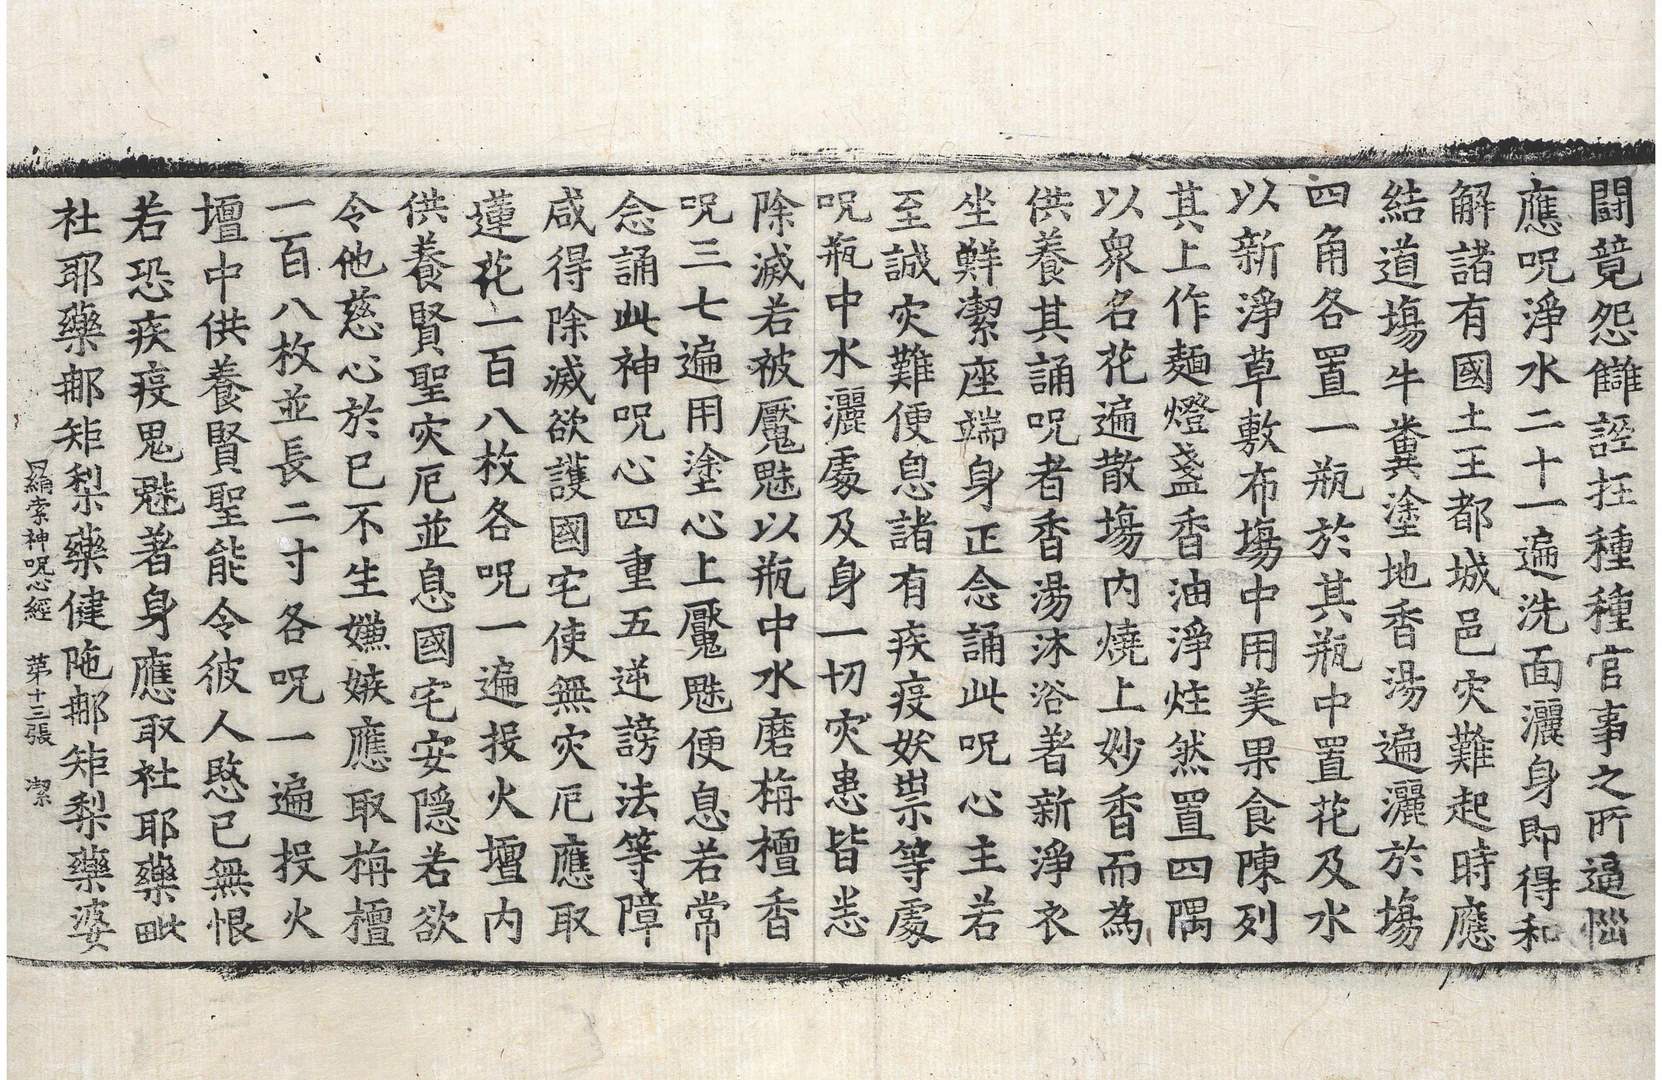 闘競怨讎誣抂種種官事之所逼惱
應呪淨水二十一遍洗面灑身即得和
解諸有國土王都城邑灾難起時應
結道塲牛糞塗地香湯遍灑於塲
四角各置一瓶於其瓶中置花及水
以新淨草敷布塲中用美果食陳列
其上作麵燈盞香油淨炷然置四隅
以衆名花遍散塲內燒上妙香而為
供養其誦呪者香湯沐浴著新淨衣
坐鮮潔座端身正念誦此呪心主若
至誠灾難便息諸有疾疫妖祟等處
呪瓶中水灑處及身一切灾患皆悉
除滅若被魘魅以瓶中水磨栴檀香
呪三七遍用塗心上魘魅便息若常
念誦此神呪心四重五逆謗法等障
咸得除滅欲護國宅使無灾厄應取
蓮花一百八枚各呪一遍投火壇內
供養賢聖灾厄並息國宅安隱若欲
令他慈心於已不生嫌嫉應取栴檀
一百八枚並長二寸各呪一遍投火
壇中供養賢聖能令彼人愍已無恨
若恐疾疫鬼魅著身應取社耶藥毗
社耶藥那矩梨藥健陁那矩梨藥婆
羂索神呪心經　第十三張　潔